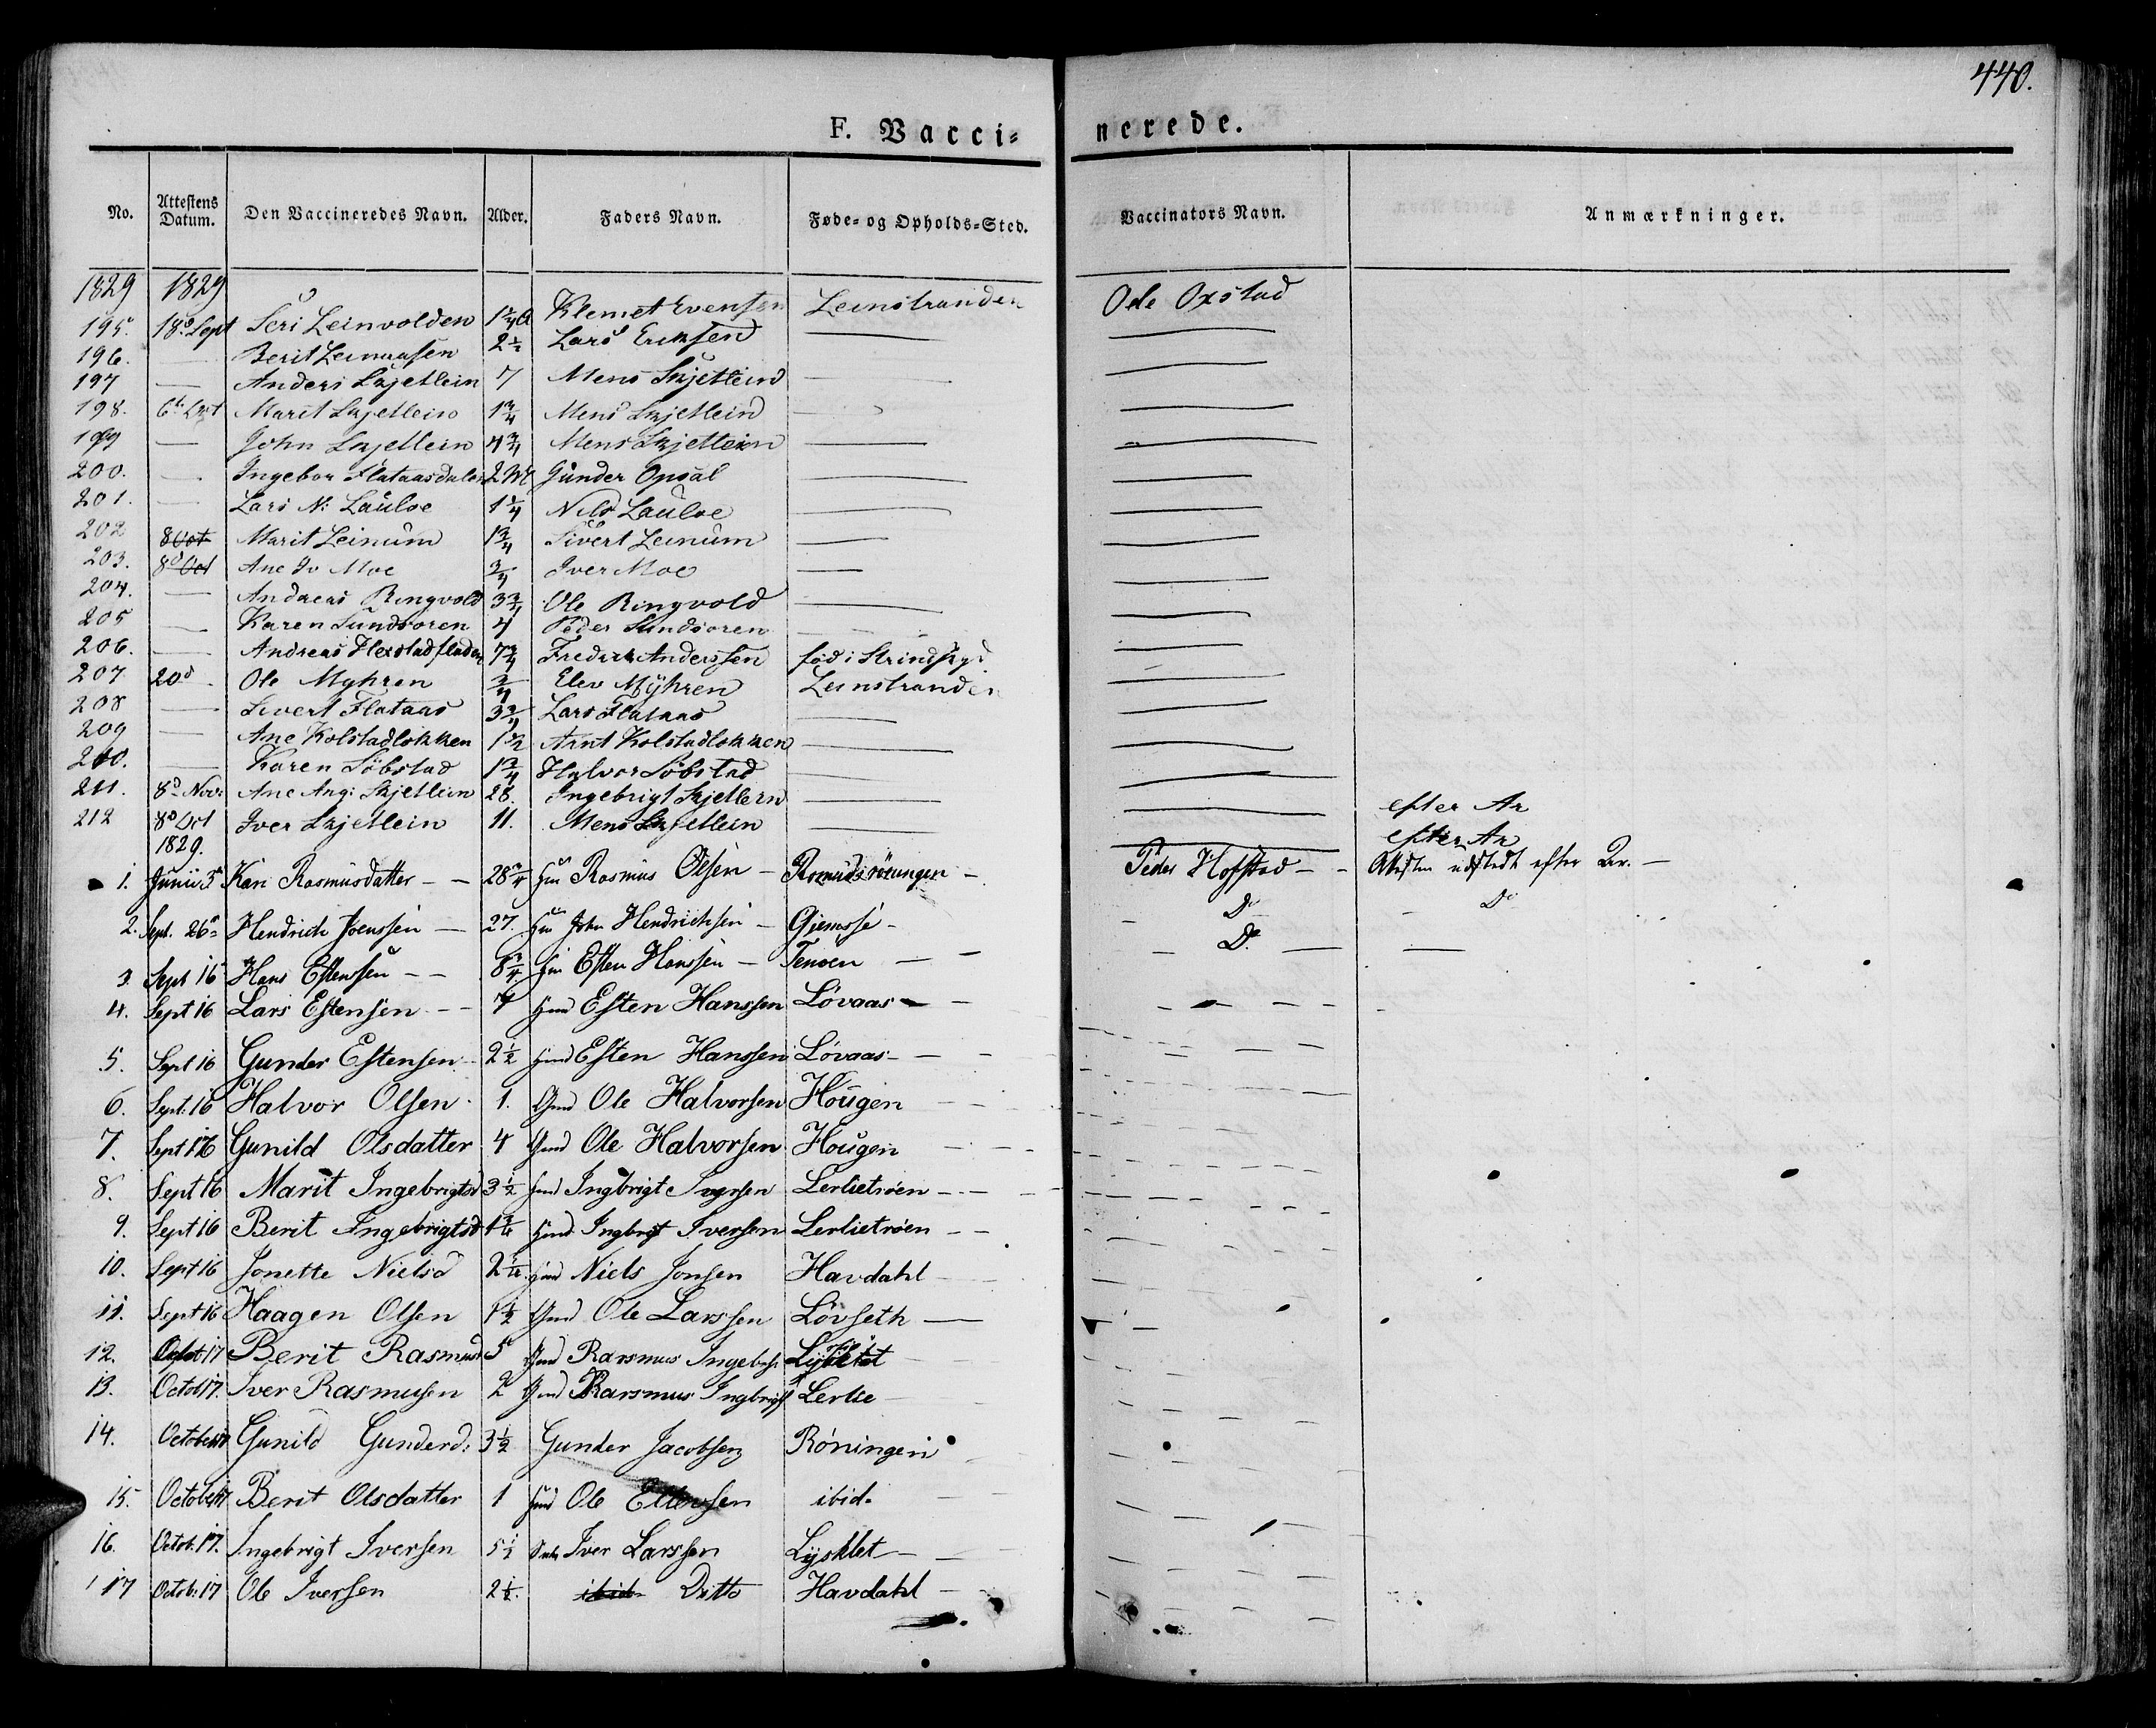 440.
F. Vacci= nerede.
No. Attestens Datum. Den Vaccineredes Navn. Alder. Faders Navn. Føde- og Opholds=Sted. Vaccinators Navn. Anmærkninger.
1829 1829
195. 18d Sept Seri Leinvolden 1¾ A Klemet Evensen Leinstranden Ole Oxstad
196. — Berit 2½ Lars Eriksen — —
197 — Anders Skjetlein 7 Mens Skjetlein — —
198. 6te Marit Skjetlein 1¾ Mens Skjetlein — —
199 — John Skjetlein 4¾ Mens Skjetlein — —
200. — Ingebor Flataasdalen 2 Gunder Opsal — —
201. — Lars N: Lauloe 1¼ Nils Lauloe — —
202 8 Oct Marit Leinum 1¾ Sivert Leinum — —
203. 8d Oct Ane Iv Moe ¾ Iver Moe — —
204. — Andreas Ringvold 3¾ Ole Ringvold — —
205 — Karen Sundsoren 4 Peder Sundsoren — —
206. — Andreas 7¾ Fredrik Anderssen fød i —
207 20d Ole Myhren ¾ Elev Myhren Leinstranden —
208 — Sivert Flataas 3¾ Lars Flataas — —
209 — Ane Kolstadlokken 1½ Arnt Kolstadlokken — —
210. — Karen Söbstad 1¾ Halvor Söbstad — —
211. 8d Nov: Ane Ang: Skjetlein 28. Ingebrigt Skjetlein — — efter Ar
212 8d Oct Iver Skjetlein 11. Mens Skjetlein — — efter Ar
1829.
1. Junii 3d Kari Rasmusdatter — — 28¾ Rasmus Olsen — — Peder Hofstad — — Attesten udstedt efter Ar. —
2. Sept. 26d Hendrich Joenssen — 27. John Hendrichsen — Gjemsse — Do — Do
3. Sept 16 Hans Estenssen — — 8¾ Esten Hanssen — Tenoen — — Do — —
4. Sept 16 Lars Estensen — — 7 Gmd Esten Hanssen Lövaas — —
5. Sept 16 Gunder Estensen — 2½ Gmd Esten Hanssen Lövaas — —
6. Sept: 16 Halvor Olsen 1. Gmd Ole Halvorsen Hougen — —
7. Sept 16 Gunild Olsdatter 4 Gmd Ole Halvorsen Hougen — —
8. Sept 16 Marit Ingebrigtsd 3½ Gmd Ingbrigt Iversen Lerlietröen — —
9. Sept 16 Berit Ingebrigtsd Gmd Ingbrigt Iversen Lerlietröen — —
10. Sept 16 Jonette Nielsd Gmd Niels Jonsen Havdahl —
11. Sept 16 Haagen Olsen 1½ Gmd Ole Larssen Lövseth —
12. Octob 17 Berit Rasmusd 5 Gmd Rarsmus Ingebr: —
13. Octob 17. Iver Rasmusen 2 Gmd Rarsmus Ingbrigt Lerlie —
14. October 17 Gunild Gunderd: 3½ Gunder Jacobsen Röningen
15. October 17 Berit Olsdatter 1 Gmd Ole Ellevsen ibid.
16. Octob. 17. Ingebrigt Iversen 5½ Iver Larssen Lysklet —
17 Octob. 17 Ole Iversen 2½. ibid Ditto Havdahl —